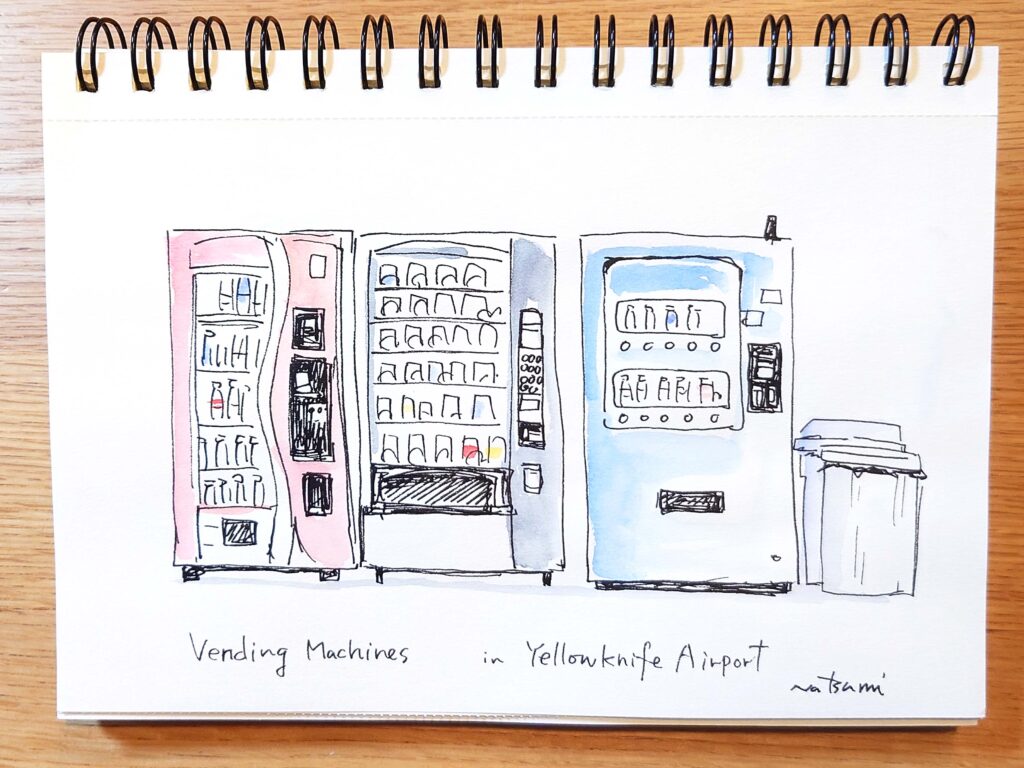 Vending Machines in Yellowknife Airport
natsumi